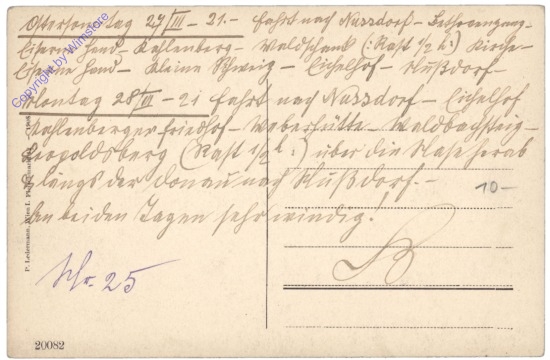 Ostersonntag 27/III - 21. - Fahrt nach Nussdorf -
Eiserne Hand - Kahlenberg - Waldschank (: Rast 1/2 h :) Kirche -
Eiserne Hand - kleine Schweiz - Eichelhof - Nußdorf -
Montag 28/III - 21 Fahrt nach Nussdorf - Eichelhof
Kahlenberger Friedhof - Weberhütte - Waldbachsteig -
Leopoldsberg (Rast 1/2 h :) über die Nase herab
längs der Donau nach Nußdorf. -
An beiden Tagen sehr windig!
10-
Nr. 25
P. Ledermann, Wien I.
20082
Copyright by Wimstore